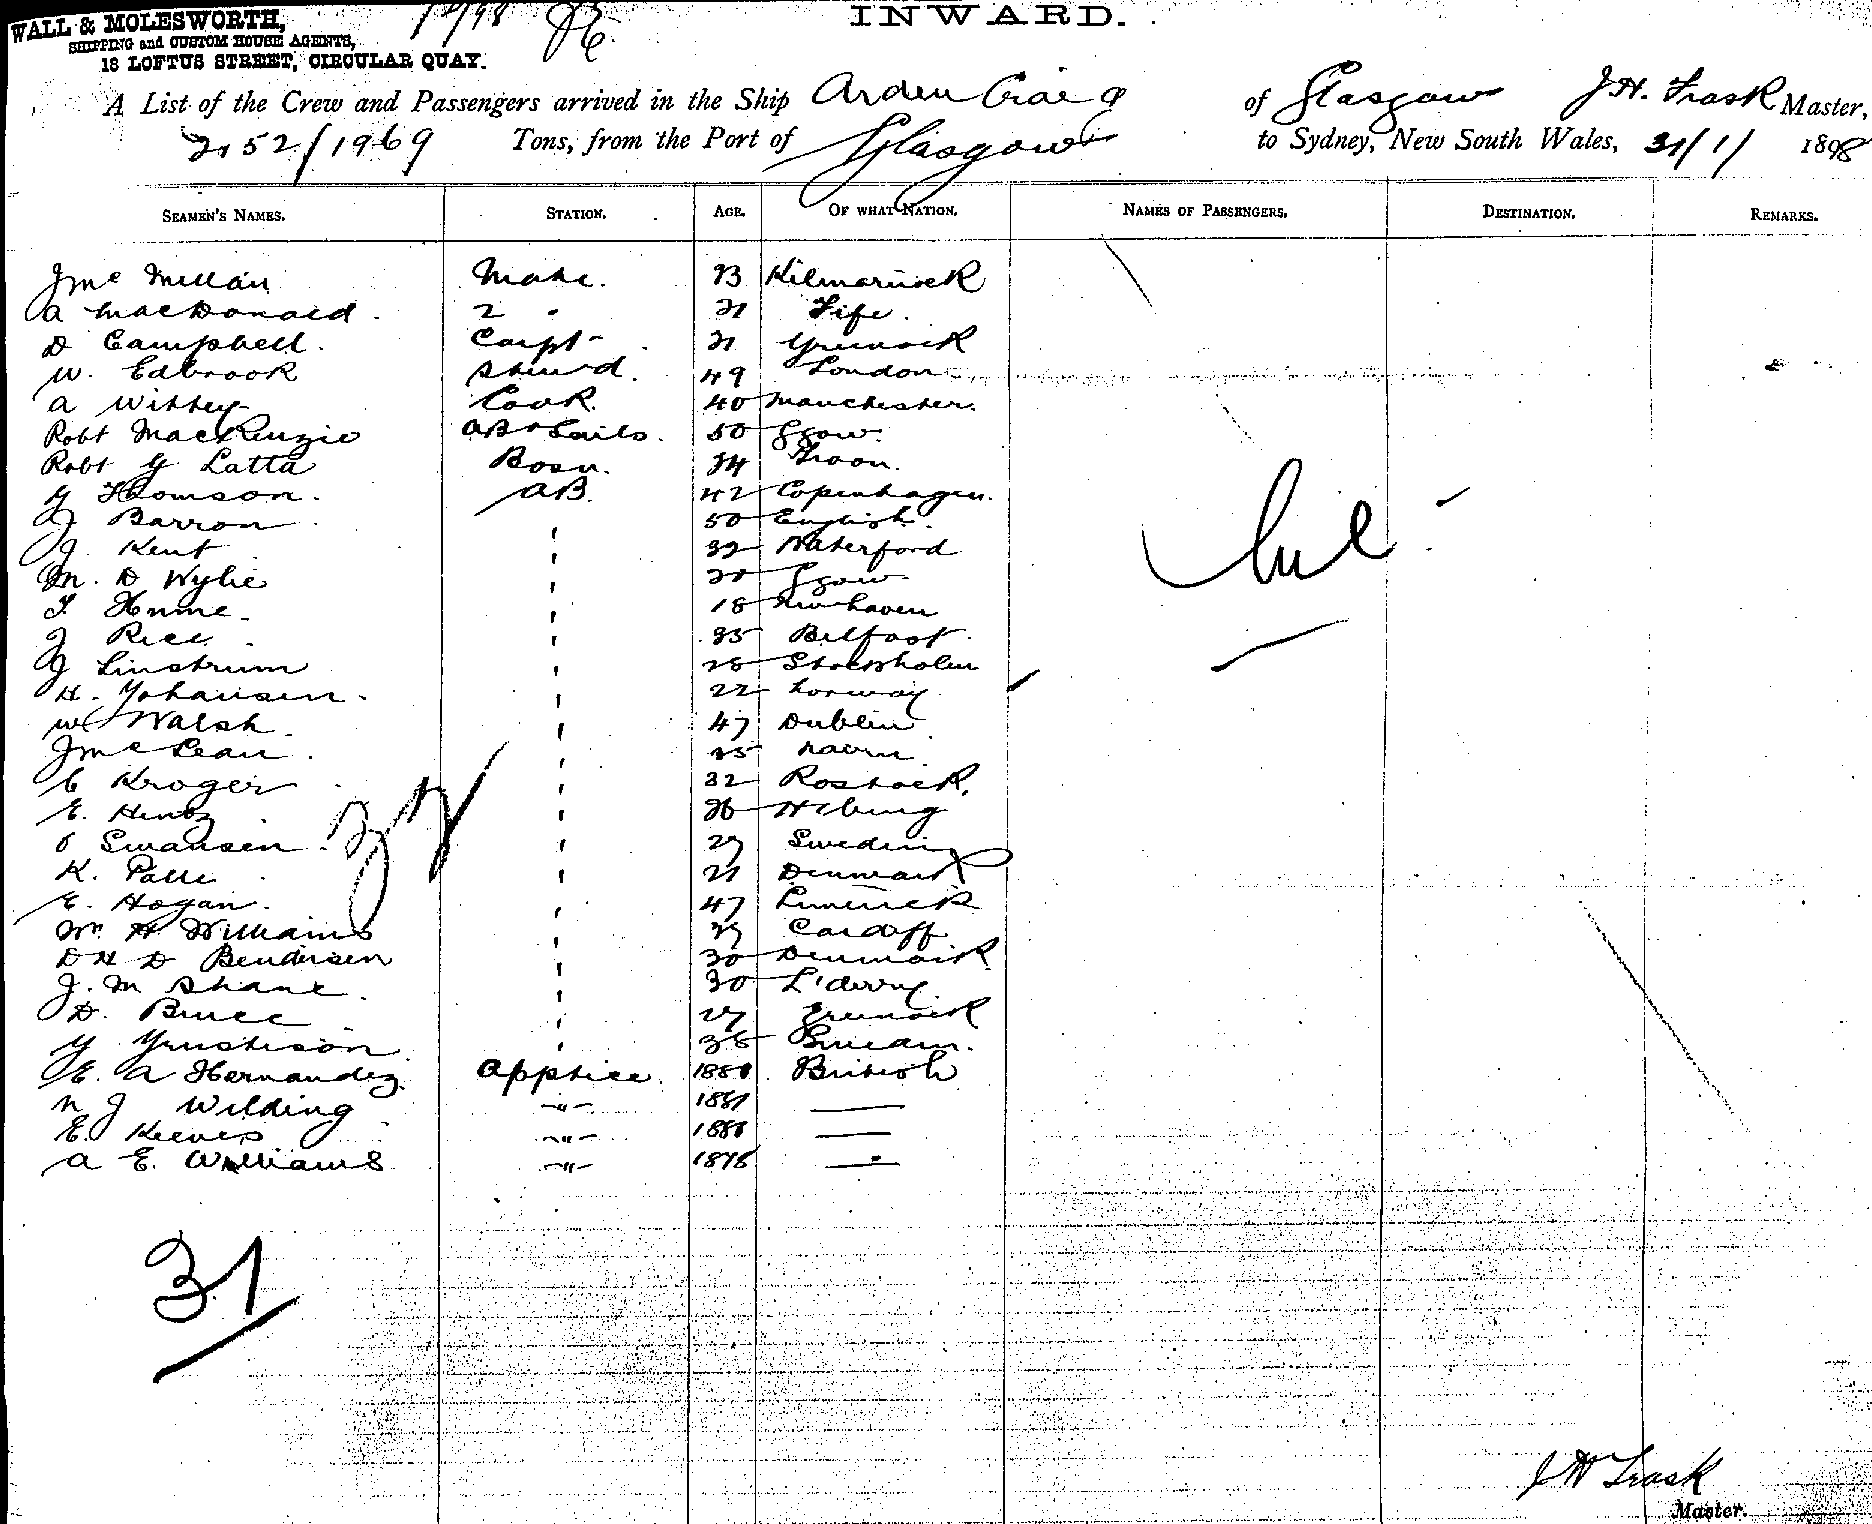 WALL & MOLESWORTH,
SHIPPING and CUSTOM HOUSE AGENTS,
18 LOFTUS STREET, CIRCULAR QUAY.
INWARD.
A List of the Crew and Passengers arrived in the Ship Arden Craig of Glasgow J H. Trask Master,
2152/1969 Tons, from the Port of Glasgow to Sydney, New South Wales, 31/1/ 1898
SEAMEN'S NAMES. STATION. AGE. OF WHAT NATION. NAMES OF PASSENGERS. DESTINATION. REMARKS.
J Mc Millan Mate. Kilmarnock
A MacDonald 2 " 31 Fife.
D Campbell. Carpt 31 Greenock
W. Edbrook Stew'd. 49 London
A Withey Cook. 40 Manchester.
Robt MacKenzie AB & Sails. 50 Ggow.
Robt G Latta Bosn. 34 Troon.
G Thomson. AB. 42 Copenhagen.
J Barron " 50 English.
J. Kent " 32 Waterford
M. D Wylie " 20 Ggow
T Hume. " 18 Newhaven
J Rice " 35 Belfast.
J Linstrum " 28 Stockholm
H. Yohansen. " 22 Norway
W Walsh. " 47 Dublin
J Mc Lean. " 25 Nairn
C Kroger " 32 Rostock.
E. Hentz " 26 Hburg
O Swansen. " 27 Sweden
K. Palle " 21 Denmark
E. Hogan. " 47 Limerick
Wm H Williams " 29 Cardiff
D H D Bendixsen " 30 Denmark
J. M Shane. " 30 L'derry.
D. Bruce " 27 Greenock
G " 38
E. A Hernandez. Apptice. 1880 British
N J Wilding " 1881 —
E. Keeves " 1880 —
A E. Williams " 1878 —
Nil
31
J H Trask
Master.